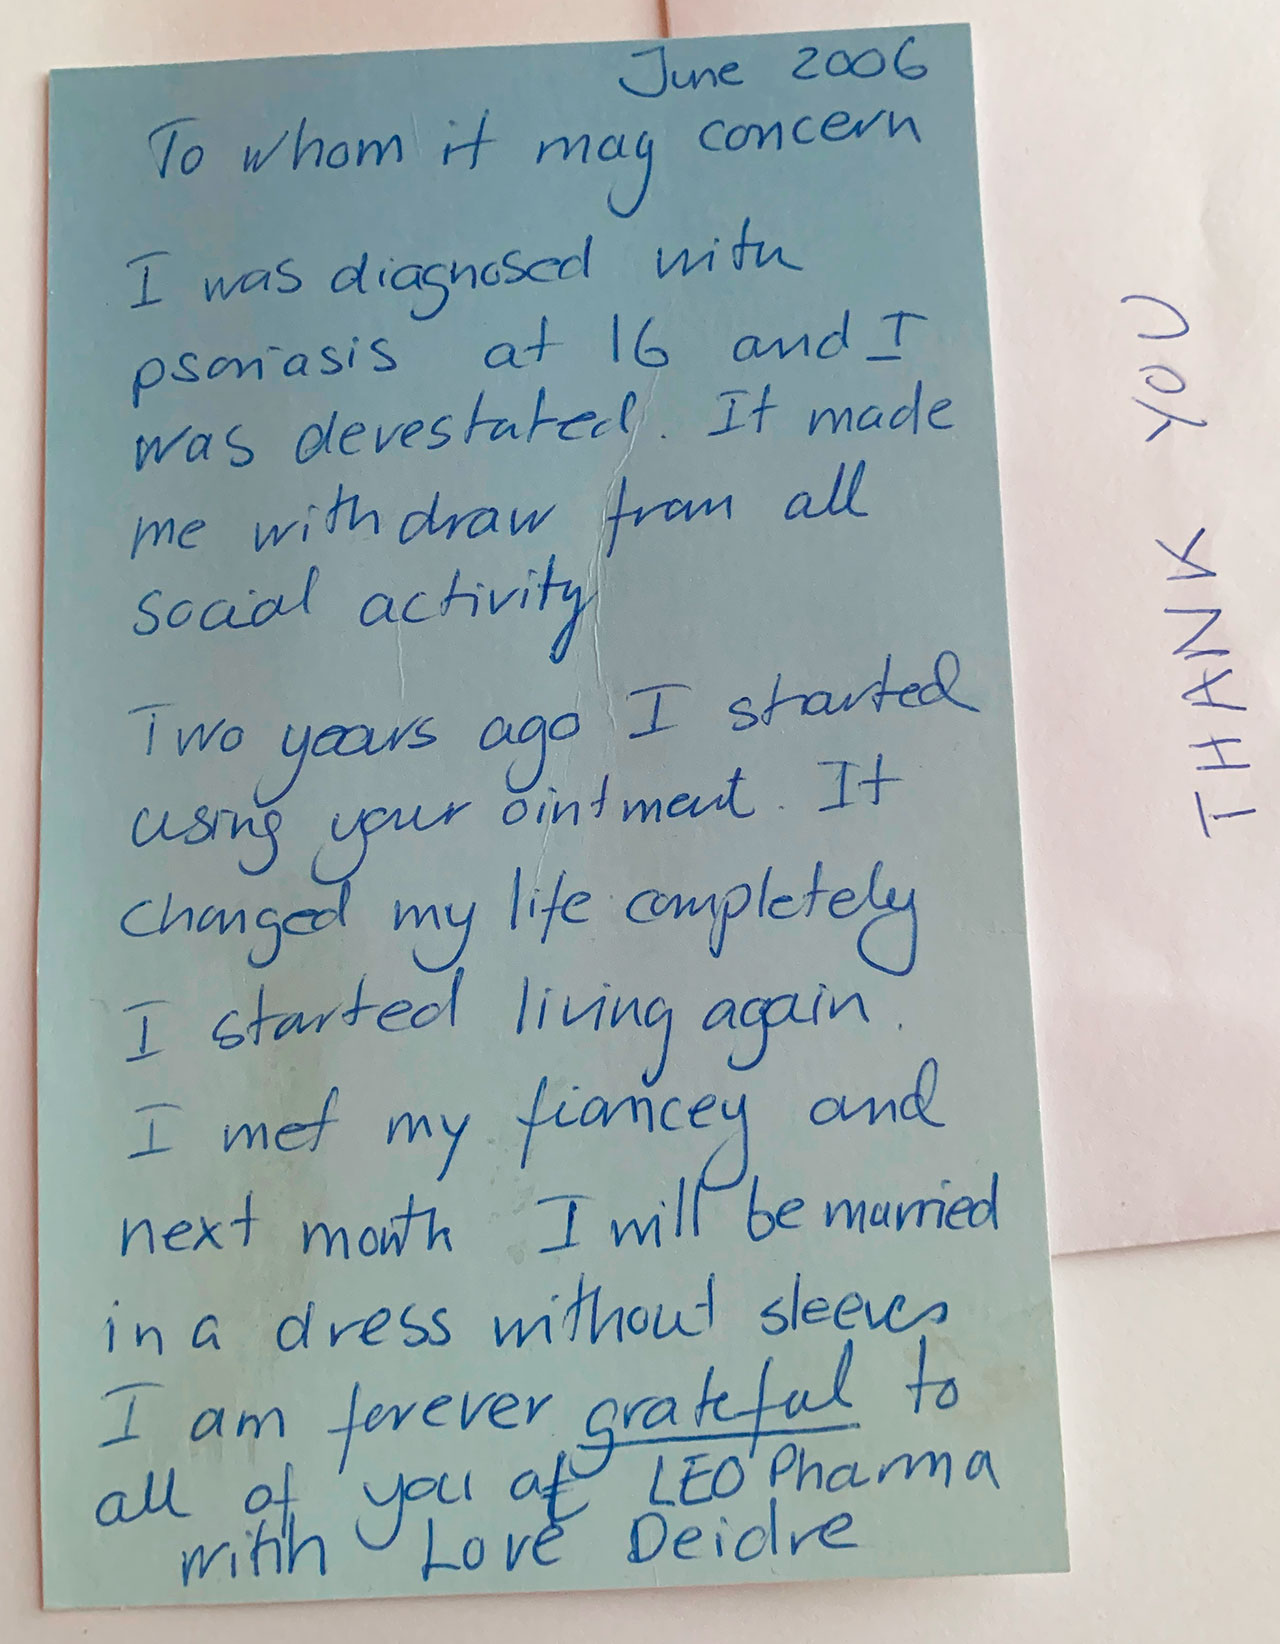 June 2006
To whom it may concern
I was diagnosed with
psoriasis at 16 and I
was devestated. It made
me withdraw from all
social activity
Two years ago I started
using your ointment. It
changed my life completely
I started living again.
I met my fiancey and
next month I will be married
in a dress without sleeves
I am forever grateful to
all of you at LEO Pharma
with Love Deidre
THANK YOU